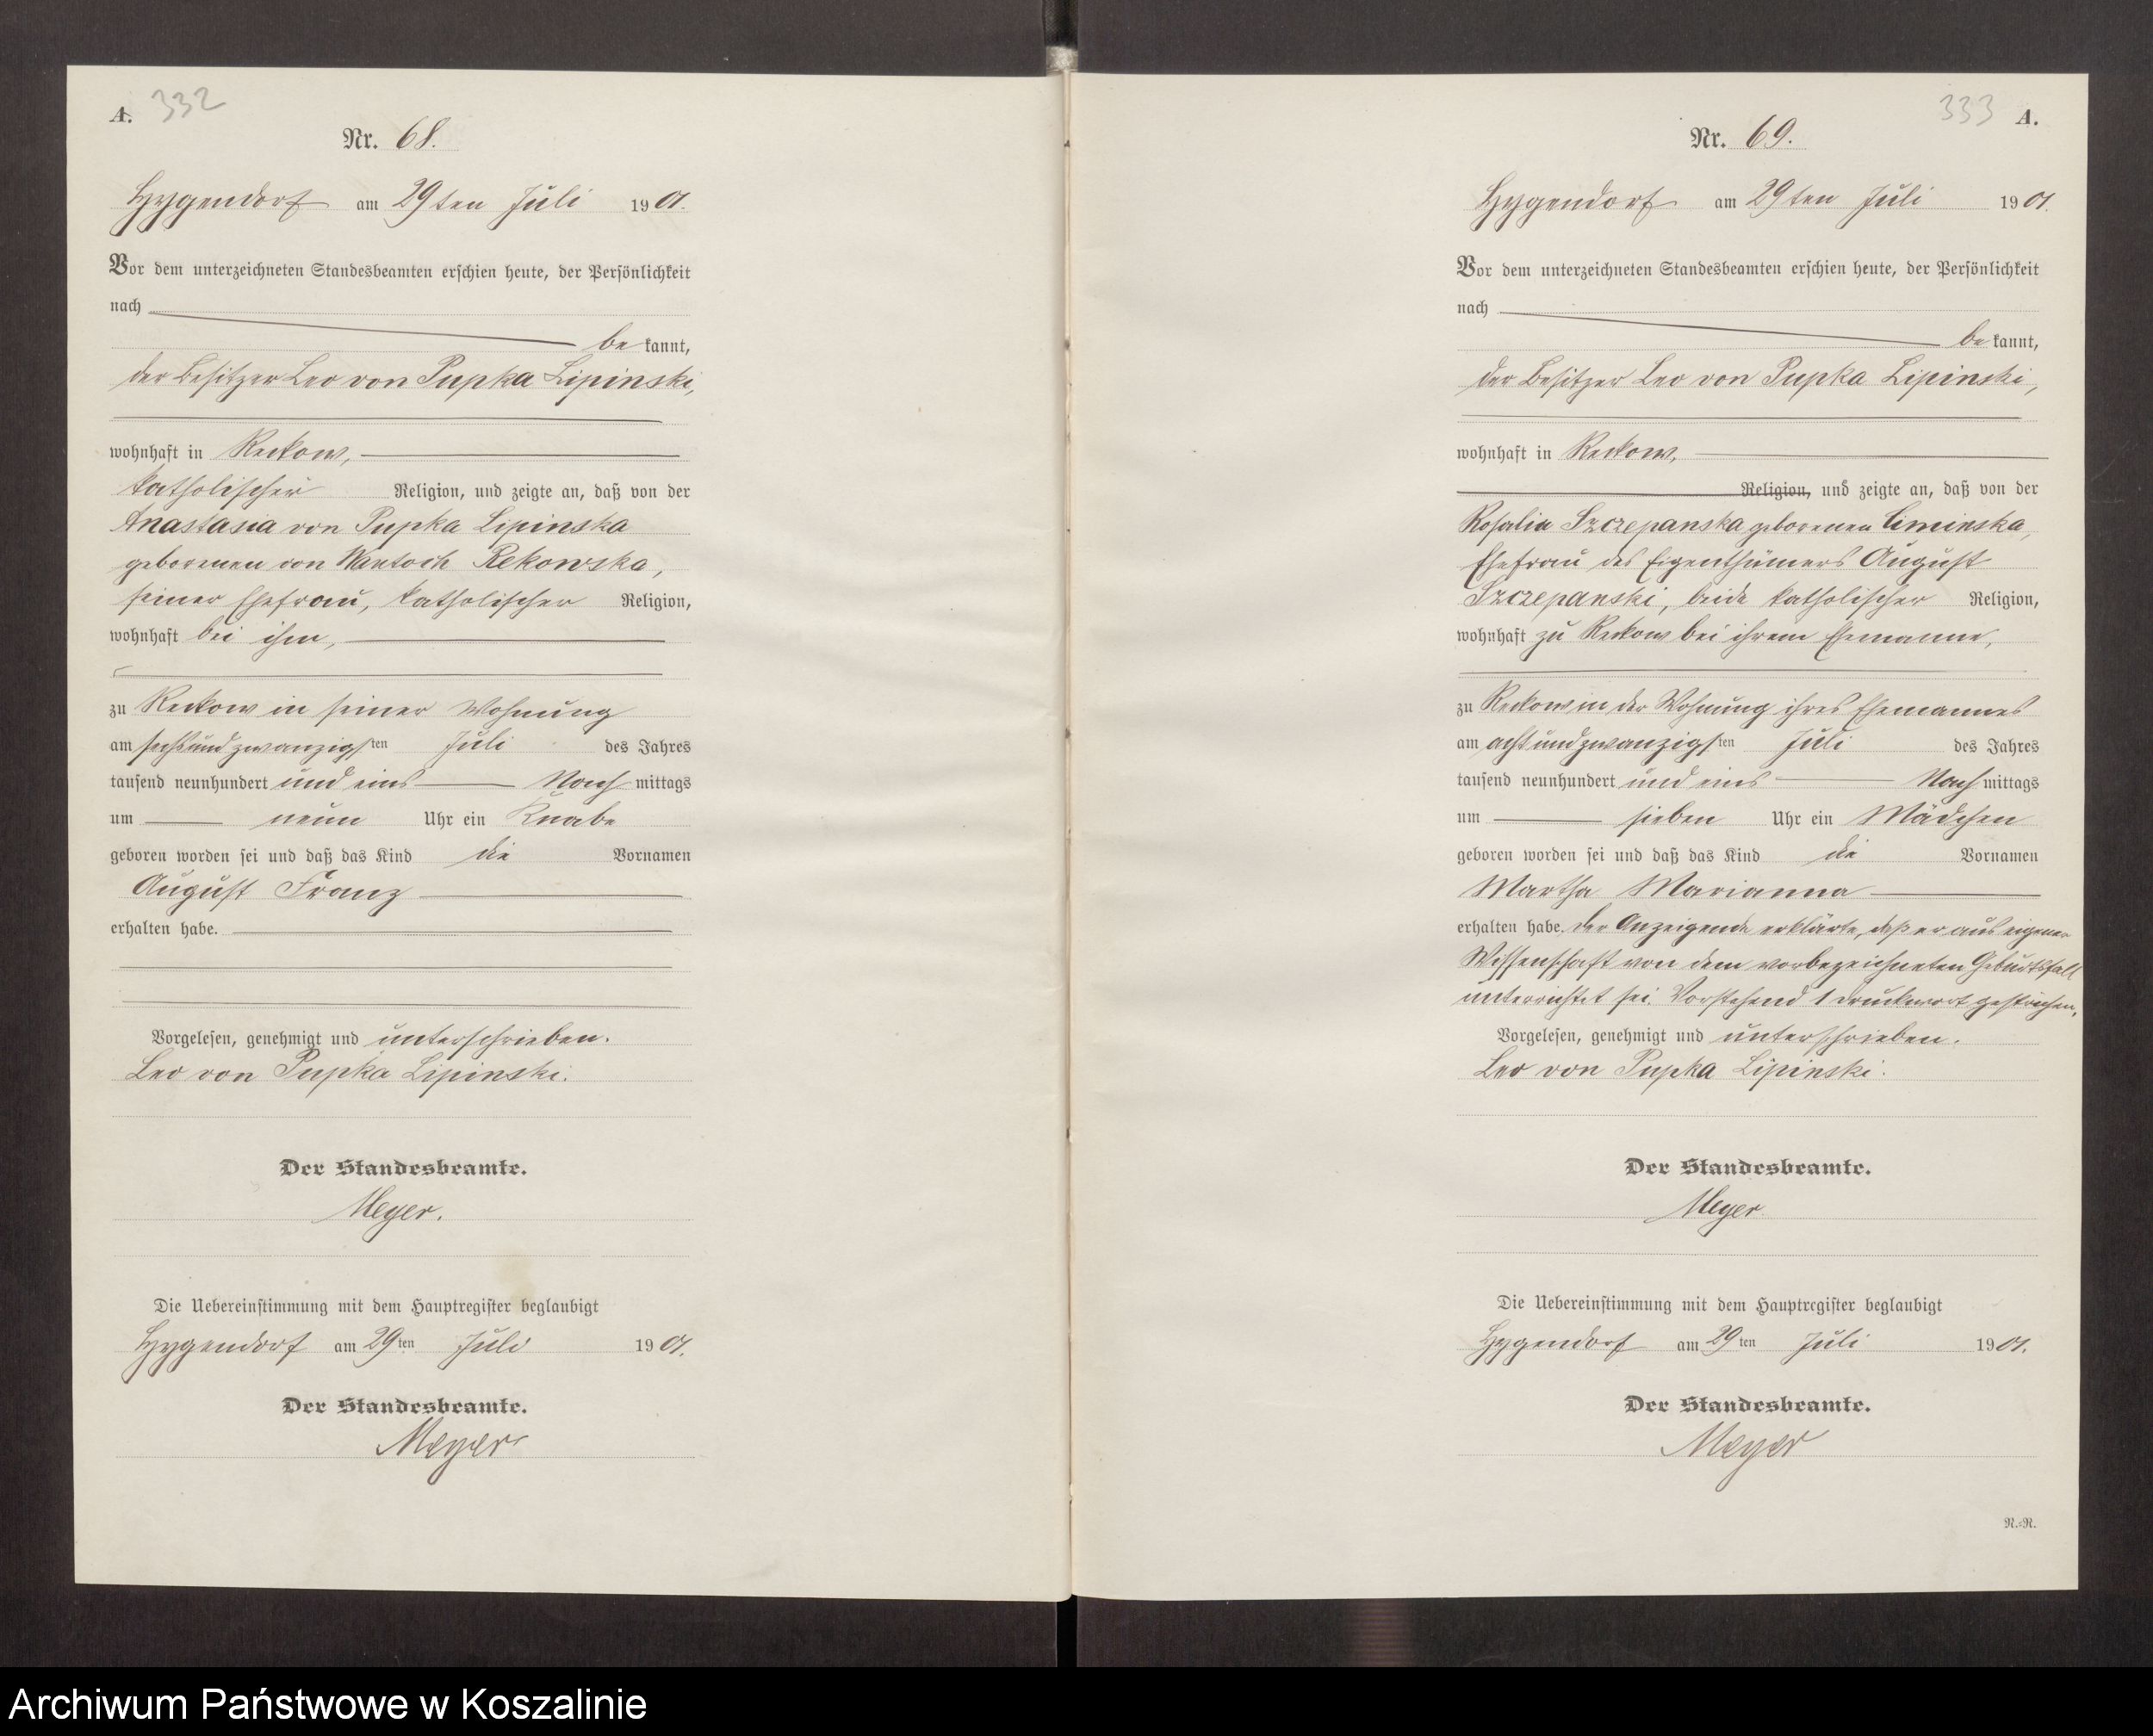 A. 332
Nr. 68.
Hygendorf am 29ten Juli 1901.
Vor dem unterzeichneten Standesbeamten erschien heute, der Persönlichkeit
nach
be kannt,
der Besitzer Leo von Pupka Lipinski,
wohnhaft in Reckow,
katholischer Religion, und zeigte an, daß von der
Anastasia von Pupka Lipinska
geborenen von Wantoch Rekowska,
seiner Ehefrau, katholischer Religion,
wohnhaft bei ihm,
zu Reckow in seiner Wohnung
am sechsundzwanzigsten Juli des Jahres
tausend neunhundert und eins Nach mittags
um neun Uhr ein Knabe
geboren worden sei und daß das Kind die Vornamen
August Franz
erhalten habe.
Vorgelesen, genehmigt und unterschrieben.
Leo von Pupka Lipinski.
Der Standesbeamte.
Meyer.
Die Uebereinstimmung mit dem Hauptregister beglaubigt
Hygendorf am 29ten Juli 1901.
Der Standesbeamte.
Meyer
333 A.
Nr. 69.
Hygendorf am 29ten Juli 1901.
Vor dem unterzeichneten Standesbeamten erschien heute, der Persönlichkeit
nach
be kannt,
der Besitzer Leo von Pupka Lipinski,
wohnhaft in Reckow,
Religion, und zeigte an, daß von der
Rosalia Szczepanska geborenen Ciminska,
Ehefrau des Eigenthümers August
Szczepanski, beide katholischer Religion,
wohnhaft zu Reckow bei ihrem Ehemanne,
zu Reckow in der Wohnung ihres Ehemannes
am achtundzwanzigsten Juli des Jahres
tausend neunhundert und eins Nach mittags
um sieben Uhr ein Mädchen
geboren worden sei und daß das Kind die Vornamen
Martha Marianna
erhalten habe. Der Anzeigende erklärte, daß er aus eigener
Wissenschaft von dem vorbezeichneten Geburtsfall
unterrichtet sei. Vorstehend 1 Druckwort gestrichen.
Vorgelesen, genehmigt und unterschrieben.
Leo von Pupka Lipinski.
Der Standesbeamte.
Meyer
Die Uebereinstimmung mit dem Hauptregister beglaubigt
Hygendorf am 29ten Juli 1901.
Der Standesbeamte.
Meyer
R.=R.
Archiwum Państwowe w Koszalinie